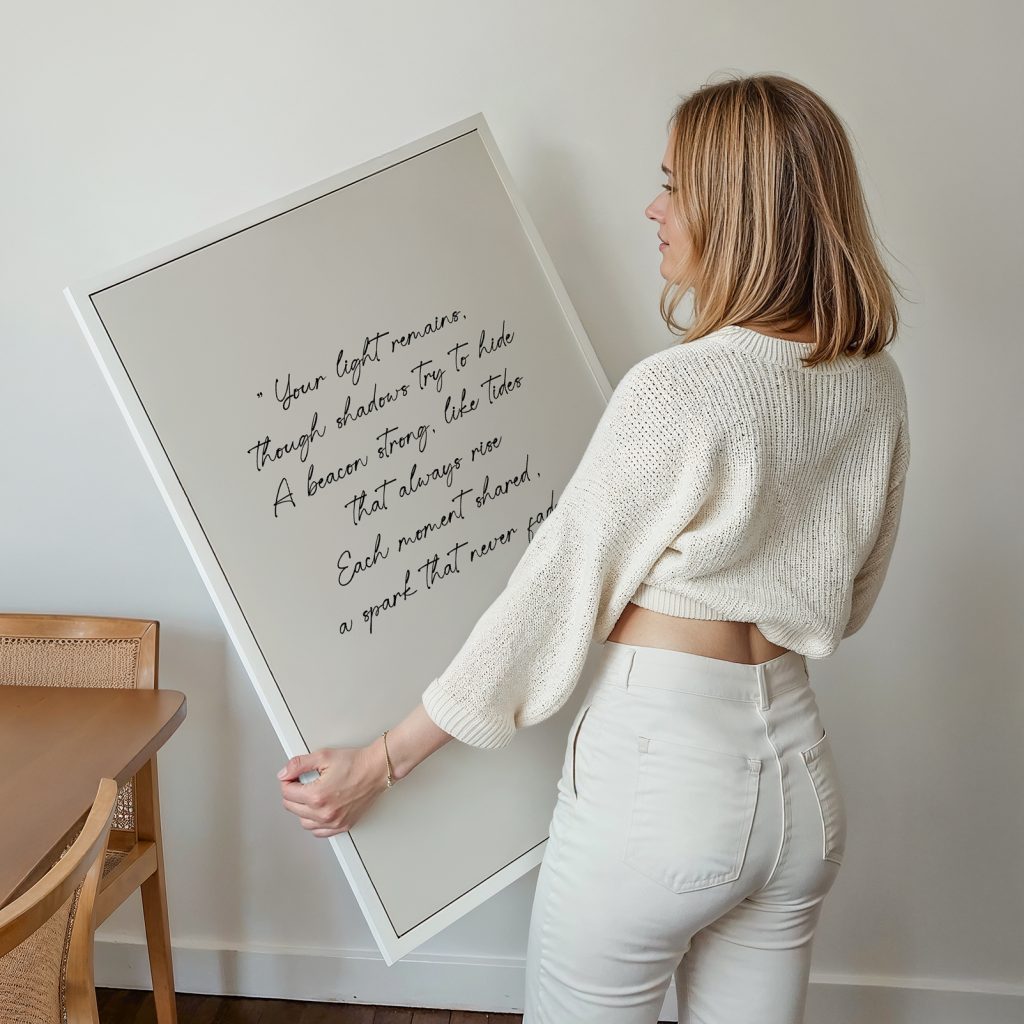 " Your light remains,
though shadows try to hide
A beacon strong, like tides
that always rise
Each moment shared,
a spark that never